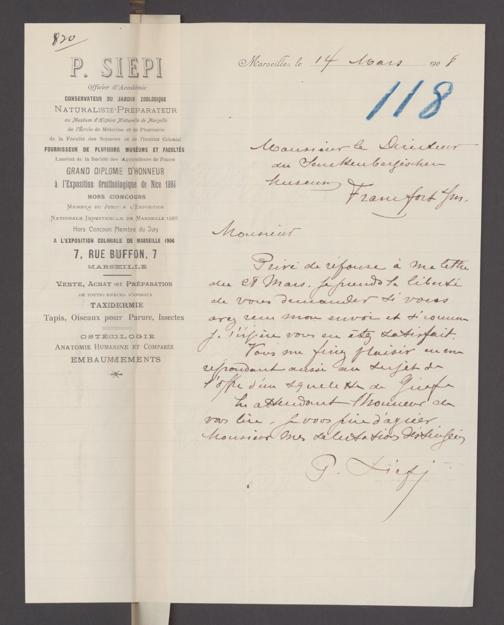 820
P. SIEPI
Officier d'Académie
CONSERVATEUR DU JARDIN ZOOLOGIQUE
NATURALISTE-PRÉPARATEUR
au Muséum d'Histoire Naturelle de Marseille
de l'École de Médecine et de Pharmacie
de la Faculté des Sciences et de l'Institut Colonial
FOURNISSEUR DE PLUSIEURS MUSÉUMS ET FACULTÉS
Lauréat de la Société des Agriculteurs de France
GRAND DIPLOME D'HONNEUR
à l'Exposition Ornithologique de Nice
HORS CONCOURS
NATIONALE INDUSTRIELLE DE MARSEILLE
Hors Concours Membre du Jury
A L'EXPOSITION COLONIALE DE MARSEILLE 1906
7, RUE BUFFON, 7
MARSEILLE
VENTE, ACHAT et PRÉPARATION
DE TOUTES ESPÈCES D'ANIMAUX
TAXIDERMIE
Tapis, Oiseaux pour Parure, Insectes
OSTÉOLOGIE
ANATOMIE HUMAINE ET COMPARÉE
EMBAUMEMENTS
Marseille, le 14 Mars 1908
118
Monsieur le Directeur
du Senckenbergischen
Museum
Francfort s/m.
Monsieur
Privé de réponse à ma lettre
du 28 Mars. je prends la liberté
de vous demander si vous
avez reçu mon envoi et si comme
j. l'espère vous en êtes satisfait.
Vous me feriez plaisir en me
répondant aussi au sujet de
l'offre d'un squelette de Girafe
En attendant l'honneur de
vous lire, je vous prie d'agréer
Monsieur mes salutations distinguées
P. Siepi